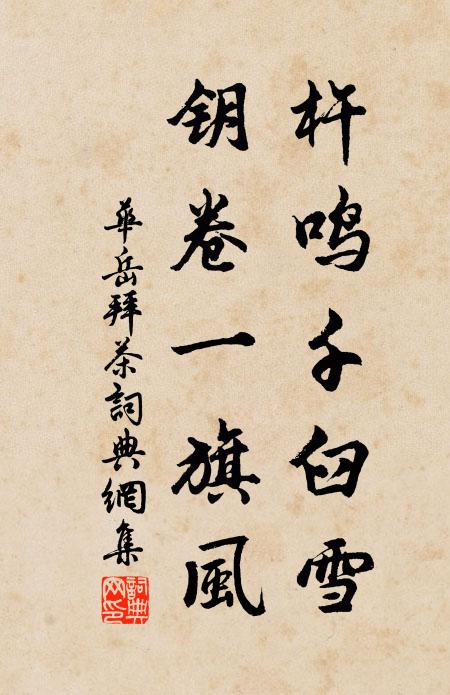 杵鸣千臼雪
钥卷一旗風
華岳拜茶詞典網集
詞典網印